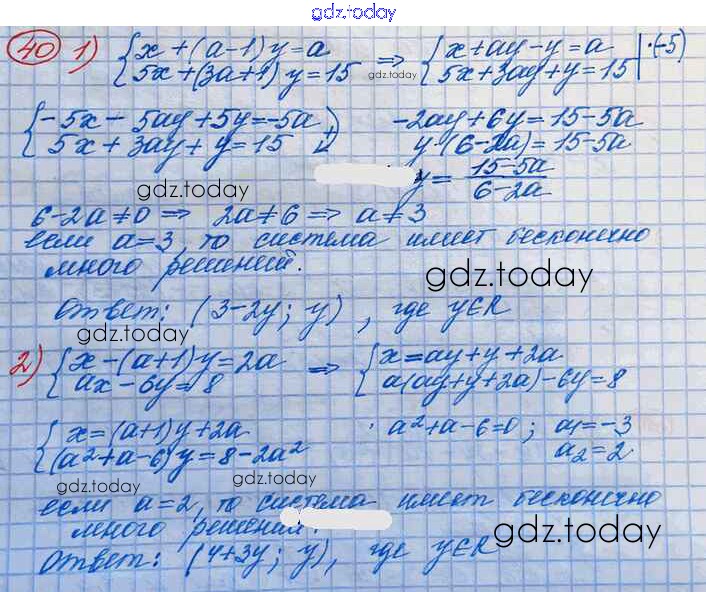 gdz.today
40 1) { x + (a-1) y = a ⇒ { x + ay - y = a | ·(-5)
5x + (3a+1) y = 15 gdz.today 5x + 3ay + y = 15
{ -5x - 5ay + 5y = -5a
5x + 3ay + y = 15
+
-2ay + 6y = 15 - 5a
y (6 - 2a) = 15 - 5a
y = 15 - 5a / 6 - 2a
gdz.today
6 - 2a ≠ 0 ⇒ 2a ≠ 6 ⇒ a ≠ 3
если a = 3, то система имеет бесконечно
много решений.
gdz.today
Ответ: (3 - 2y; y), где y∈R
gdz.today
2) { x - (a+1) y = 2a ⇒ { x = ay + y + 2a
ax - 6y = 8 a(ay + y + 2a) - 6y = 8
{ x = (a+1) y + 2a
(a² + a - 6) y = 8 - 2a²
a² + a - 6 = 0; a₁ = -3
a₂ = 2
gdz.today gdz.today
если a = 2, то система имеет бесконечно
много решений.
gdz.today
Ответ: (4 + 3y; y), где y∈R